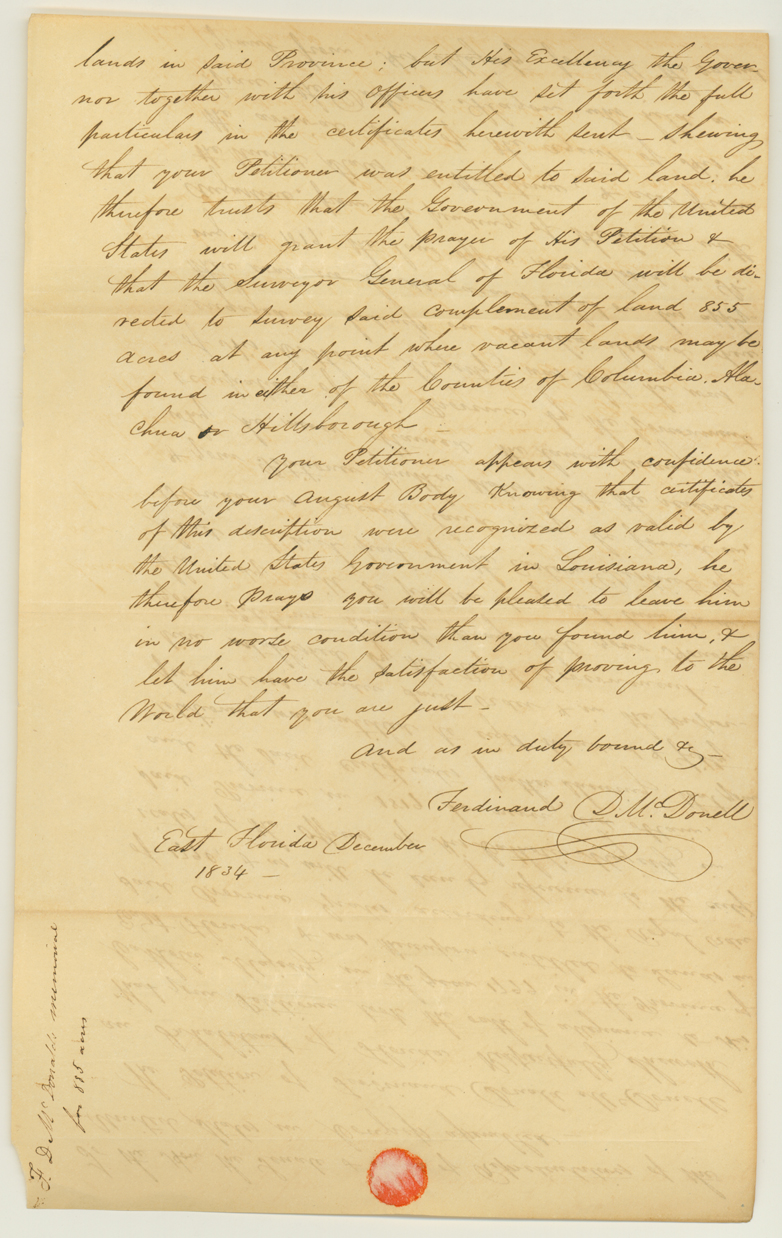 lands in said Province; but His Excellency the Gover-
nor together with his Officers have set forth the full
particulars in the certificates herewith sent – shewing
that your Petitioner was entitled to said land. he
therefore trusts that the Government of the United
States will grant the prayer of His Petition &
that the Surveyor General of Florida will be di-
rected to survey said complement of land 855
acres at any point where vacant lands may be
found in either of the Counties of Columbia. Ala-
chua or Hillsborough –
your Petitioner appears with confidence
before your August Body Knowing that certificates
of this description were recognized as valid by
the United States Government in Louisiana, he
therefore prays you will be pleased to leave him
in no worse condition than you found him, &
let him have the satisfaction of proving to the
World that you are just –
And as in duty bound &c –
Ferdinand D McDonell
East Florida December
1834 –
F. D McDonalds memorial
for 885 acres